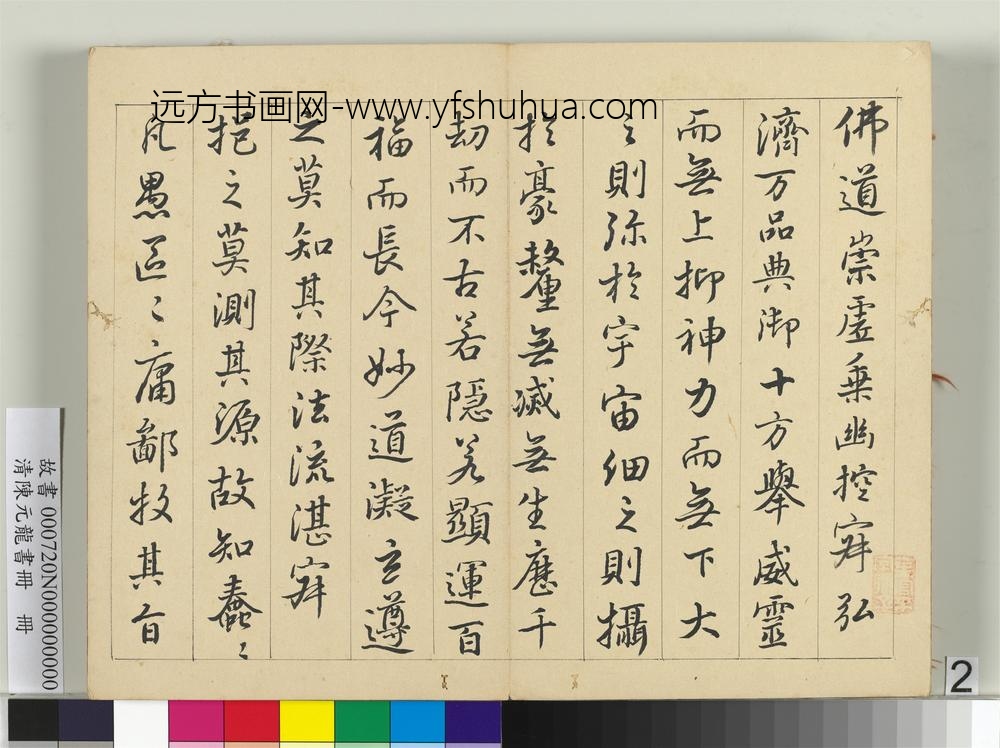 远方书画网-www.yfshuhua.com
佛道崇虛乗幽控寂弘
濟万品典御十方舉威靈
而無上抑神力而無下大
之則弥於宇宙細之則攝
於豪釐無滅無生歷千
劫而不古若隱若顯運百
福而長今妙道凝玄遵
之莫知其際法流湛寂
挹之莫測其源故知蠢〻
凡愚區〻庸鄙投其旨
故書 000720N000000000
清陳元龍書冊 冊
2